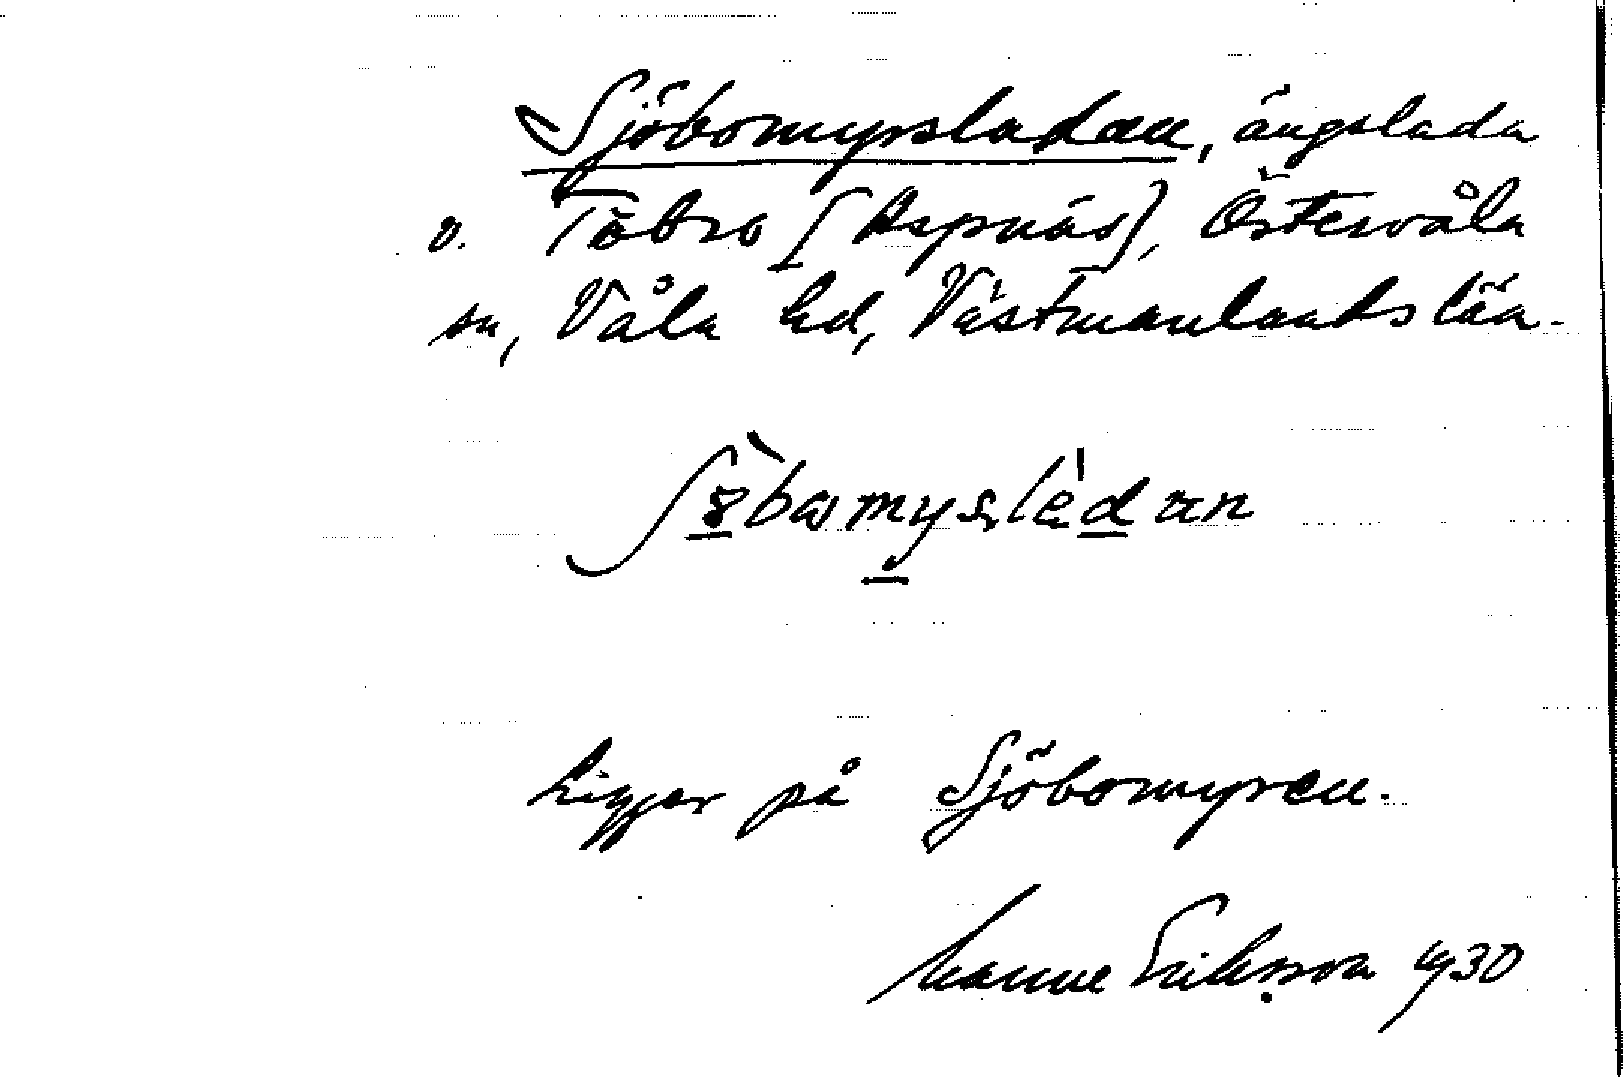 Sjöbomyrsladan, ängslada
v. Täbro [Aspnäs], Östervåla
sn, Våla hd, Västmanlands län.
ʃø̀bɷmysle̍dan
Ligger på Sjöbomyren.
Manne Eriksson 1930